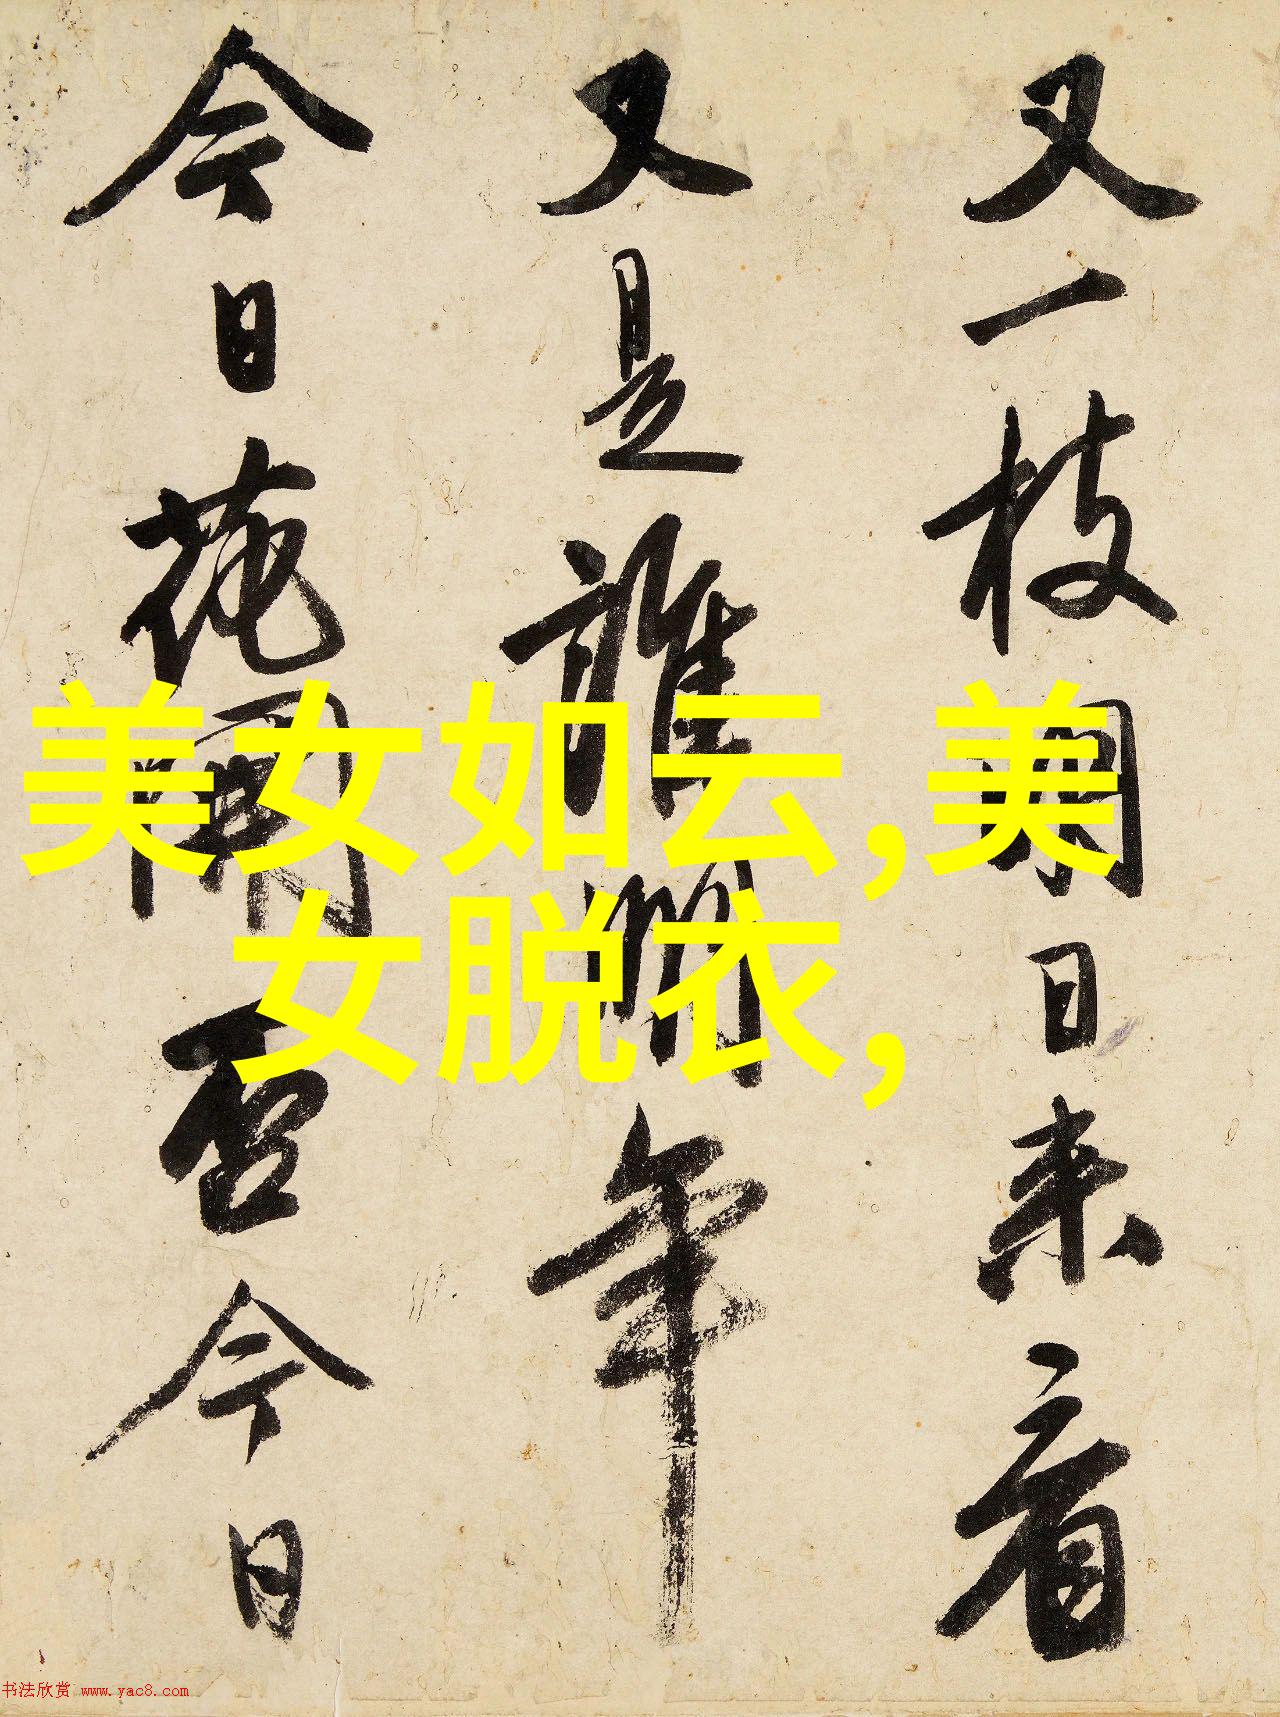 又一枝開日来看
又是誰明年
今日花開否今日
美女如云,美
女脱衣,
书法欣赏 www.yac8.com